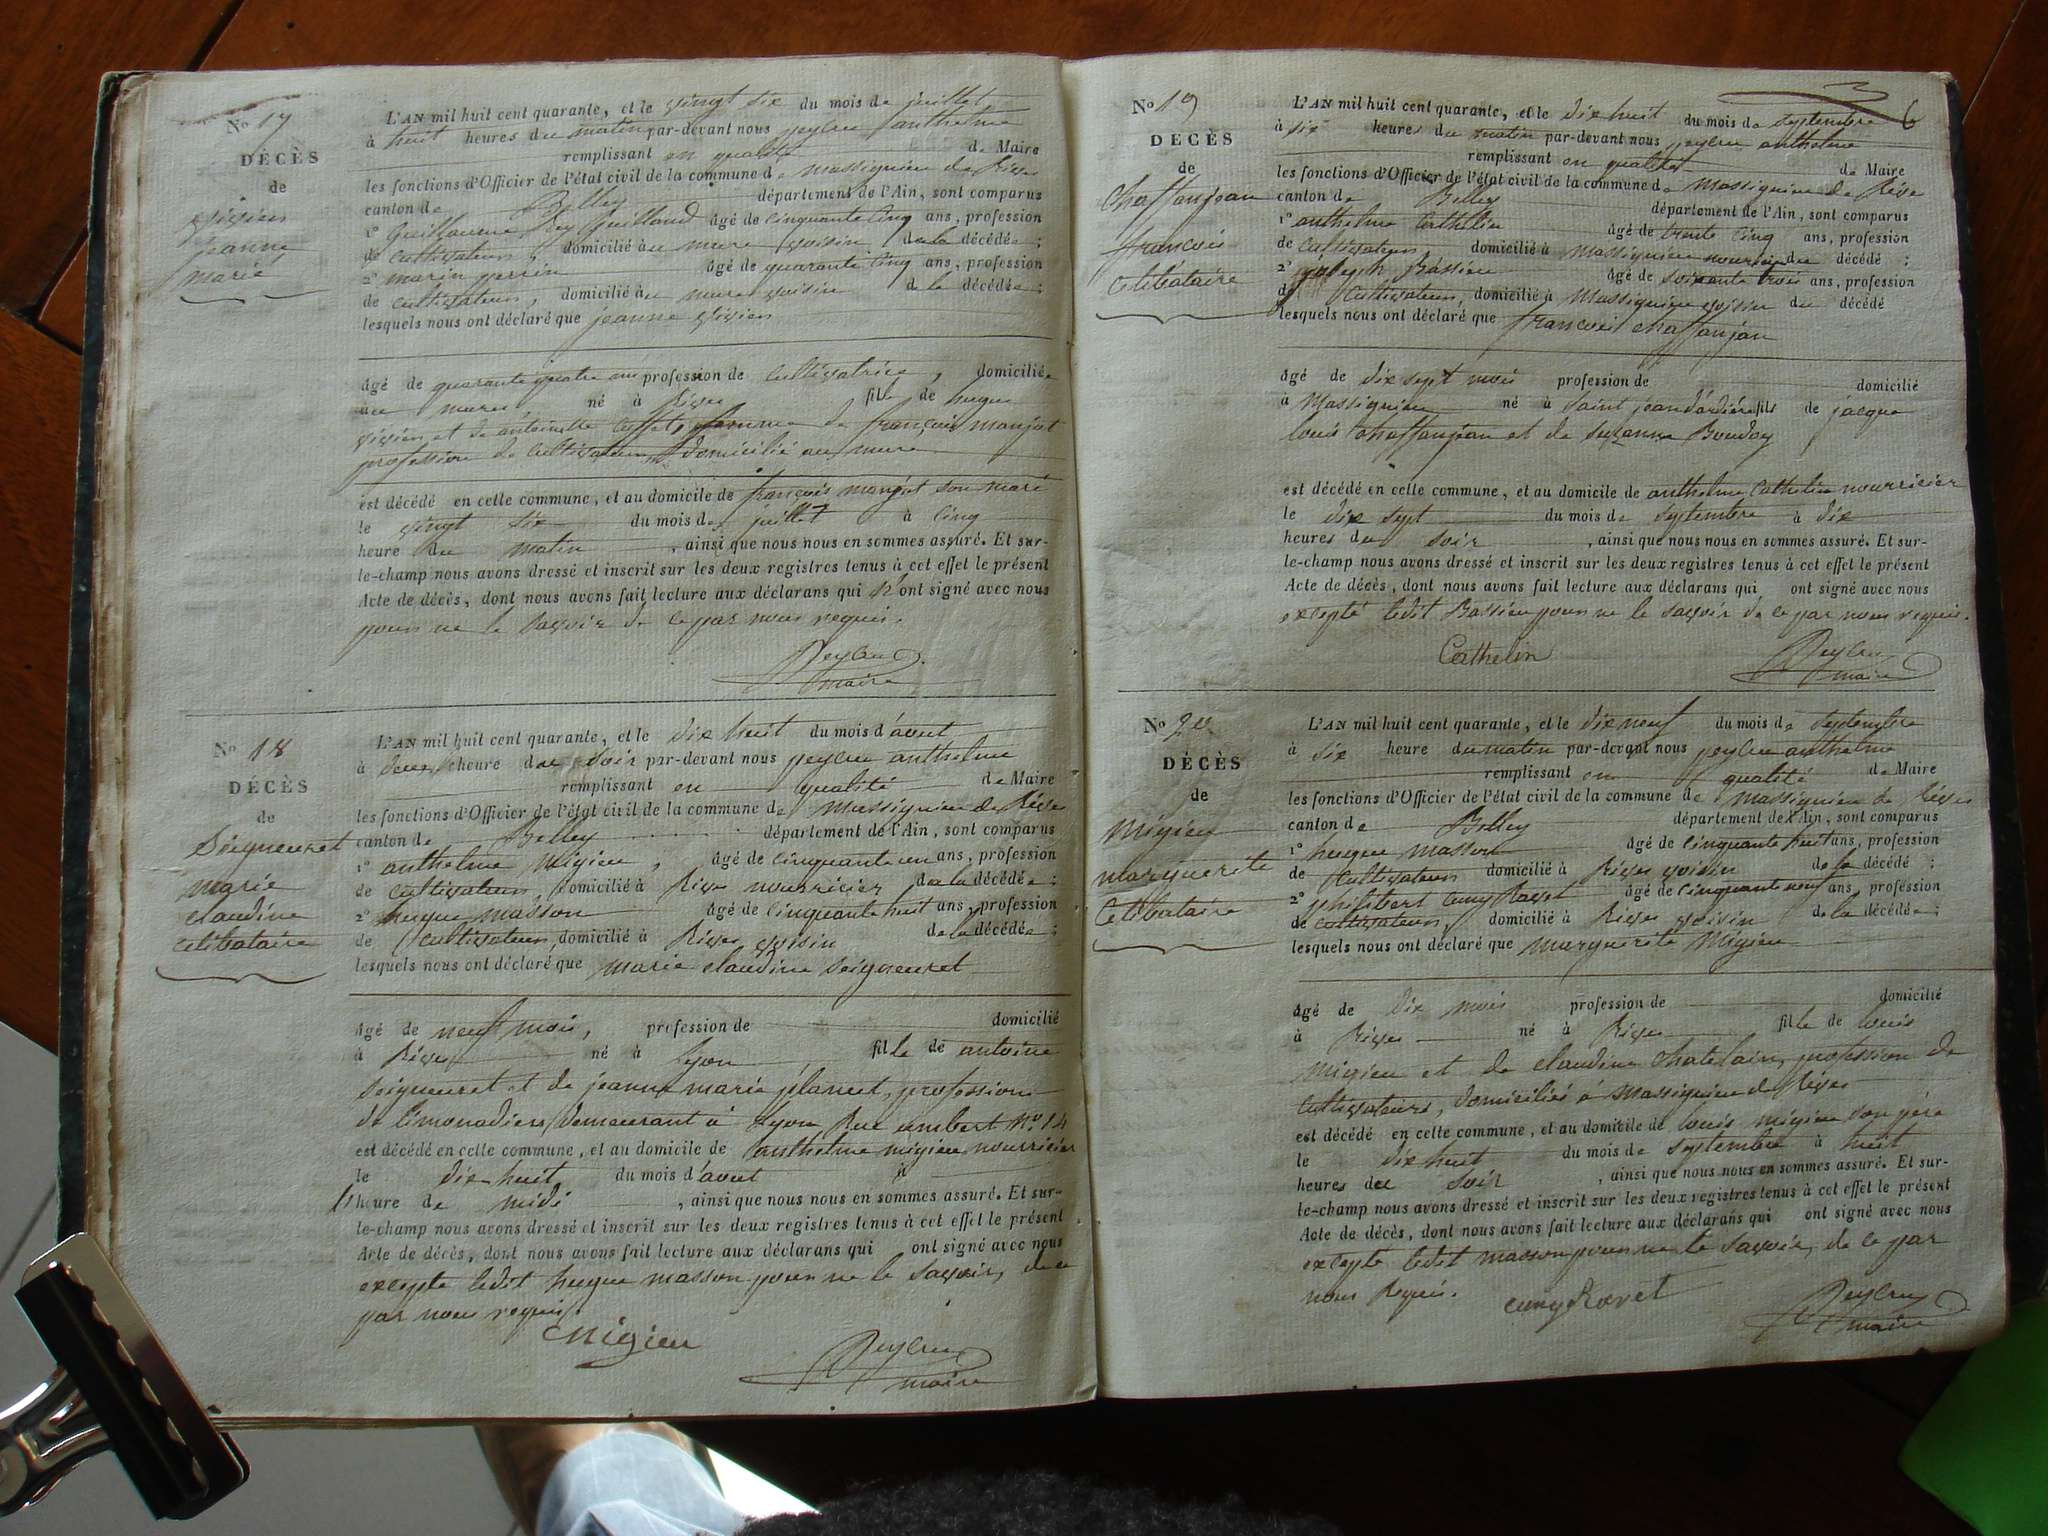 No 17
DÉCÈS
de
vivien
jeanne
marié
L'AN mil huit cent quarante, et le vingt six du mois de juillet
à huit heures du matin par-devant nous peyleu anthelme
remplissant en qualité de Maire
les fonctions d'Officier de l'état civil de la commune de massignieu de Rives
canton de Belley département de l'Ain, sont comparus
1o Guillaume Rey Guilland âgé de cinquante cinq ans, profession
de cultivateur, domicilié au mure voisin de la décédée;
2o marin perrin âgé de quarante cinq ans, profession
de cultivateur, domicilié au mure voisin de la décédée;
lesquels nous ont déclaré que jeanne vivien
âgé de quarante quatre ans profession de cultivatrice, domiciliée
au mure né à Rives fille de hugue
vivien et de antoinette femme de françois manjot
profession de cultivateur domicilié au mure
est décédé en cette commune, et au domicile de françois manjot son mari
le vingt six du mois de juillet à cinq
heure du matin, ainsi que nous nous en sommes assuré. Et sur-
le-champ nous avons dressé et inscrit sur les deux registres tenus à cet effet le présent
Acte de décès, dont nous avons fait lecture aux déclarans qui n'ont signé avec nous
pour ne le savoir de ce par nous requis.
Peyleu
maire
No 18
DÉCÈS
de
Seigneuret
marie
claudine
celibataire
L'AN mil huit cent quarante, et le dix huit du mois d'aout
à deux heure du soir par-devant nous peyleu anthelme
remplissant en qualité de Maire
les fonctions d'Officier de l'état civil de la commune de massignieu de Rives
canton de Belley département de l'Ain, sont comparus
1o anthelme Migieu, âgé de cinquante un ans, profession
de cultivateur, domicilié à Rives nourricier de la décédée;
2o hugue masson âgé de cinquante huit ans, profession
de cultivateur, domicilié à Rives voisin de la décédée;
lesquels nous ont déclaré que marie claudine seigneuret
âgé de neuf mois, profession de domicilié
à Rives né à Lyon fille de antoine
seigneuret et de jeanne marie planut, profession
de limonadier demeurant à Lyon Rue imbert No 14
est décédé en cette commune, et au domicile de anthelme migieu nourricier
le dix-huit du mois d'aout à
heure de midi, ainsi que nous nous en sommes assuré. Et sur-
le-champ nous avons dressé et inscrit sur les deux registres tenus à cet effet le présent
Acte de décès, dont nous avons fait lecture aux déclarans qui ont signé avec nous
excepte ledit hugue masson pour ne le savoir, de ce
par nous requis.
Migieu
Peyleu
maire
6
No 19
DÉCÈS
de
Chaffanjean
françois
celibataire
L'AN mil huit cent quarante, et le dix huit du mois de septembre
à six heures du matin par-devant nous peyleu anthelme
remplissant en qualité de Maire
les fonctions d'Officier de l'état civil de la commune de Massignieu de Rive
canton de Belley département de l'Ain, sont comparus
1o anthelme Cathelin âgé de trente cinq ans, profession
de cultivateur, domicilié à Massignieu nourricier du décédé;
2o joseph Bassieu âgé de soixante trois ans, profession
de cultivateur, domicilié à Massignieu voisin du décédé
lesquels nous ont déclaré que françois chaffanjan
âgé de dix sept mois profession de domicilié
à Massignieu né à saint jean d'ardière fils de jacque
louis chaffanjean et de suzanne Boudoy
est décédé en cette commune, et au domicile de anthelme Cathelin nourricier
le dix sept du mois de septembre à dix
heures du soir, ainsi que nous nous en sommes assuré. Et sur-
le-champ nous avons dressé et inscrit sur les deux registres tenus à cet effet le présent
Acte de décès, dont nous avons fait lecture aux déclarans qui ont signé avec nous
excepté ledit Bassieu pour ne le savoir de ce par nous requis.
Cathelin
Peyleu
maire
No 20
DÉCÈS
de
Migieu
marguerite
celibataire
L'AN mil huit cent quarante, et le dix neuf du mois de septembre
à dix heure du matin par-devant nous peyleu anthelme
remplissant en qualité de Maire
les fonctions d'Officier de l'état civil de la commune de massignieu de Rives
canton de Belley département de l'Ain, sont comparus
1o hugue masson âgé de cinquante huit ans, profession
de cultivateur domicilié à Rives voisin de la décédé;
2o philibert cuny Ravet âgé de cinquante neuf ans, profession
de cultivateur, domicilié à Rives voisin de la décédée;
lesquels nous ont déclaré que marguerite Migieu
âgé de dix mois profession de domicilié
à Rives né à Rives fille de louis
migieu et de claudine chatelain, profession de
cultivateurs, domiciliés à massignieu de Rives
est décédé en cette commune, et au domicile de louis migieu son père
le dix huit du mois de septembre à huit
heures du soir, ainsi que nous nous en sommes assuré. Et sur-
le-champ nous avons dressé et inscrit sur les deux registres tenus à cet effet le présent
Acte de décès, dont nous avons fait lecture aux déclarans qui ont signé avec nous
excepte ledit masson pour ne le savoir, de ce par
nous Requis.
cuny Ravet
Peyleu
maire